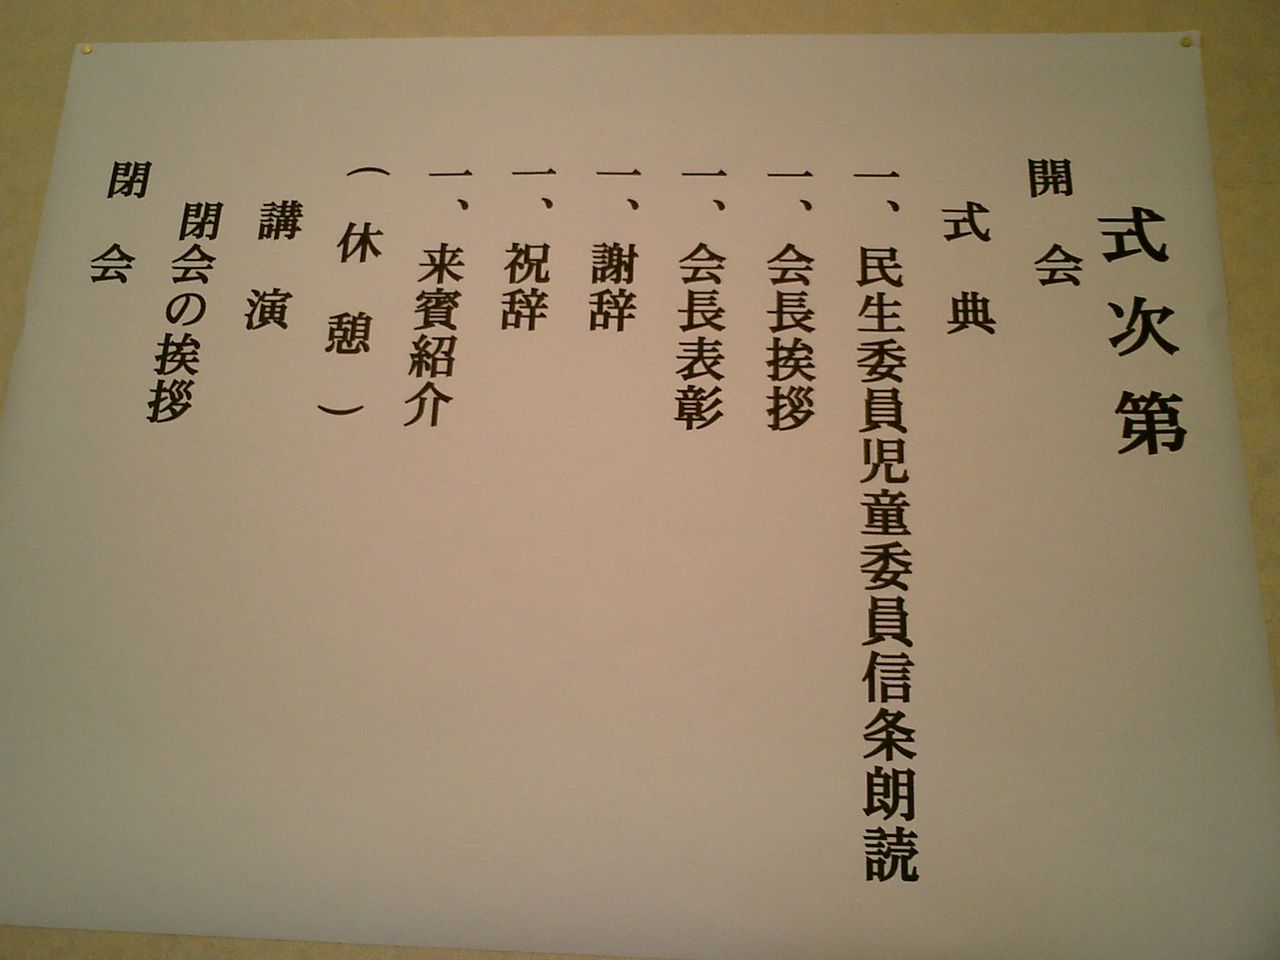 式次第
開会
式典
一、民生委員児童委員信条朗読
一、会長挨拶
一、会長表彰
一、謝辞
一、祝辞
一、来賓紹介
（休憩）
講演
閉会の挨拶
閉会